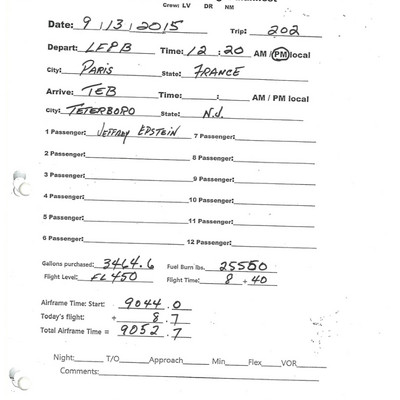 Crew: LV DR NM
Date: 9/13/2015 Trip: 202
Depart: LFPB Time: 12:20 AM / PM local
City: PARIS State: FRANCE
Arrive: TEB Time: : AM / PM local
City: TETERBORO State: N.J.
1 Passenger: JEFFREY EPSTEIN 7 Passenger:
2 Passenger: 8 Passenger:
3 Passenger: 9 Passenger:
4 Passenger: 10 Passenger:
5 Passenger: 11 Passenger:
6 Passenger: 12 Passenger:
Gallons purchased: 3464.6 Fuel Burn lbs. 25550
Flight Level: FL450 Flight Time: 8 + 40
Airframe Time: Start: 9044.0
Today's flight: + 8.7
Total Airframe Time = 9052.7
Night: T/O Approach Min Flex VOR
Comments: